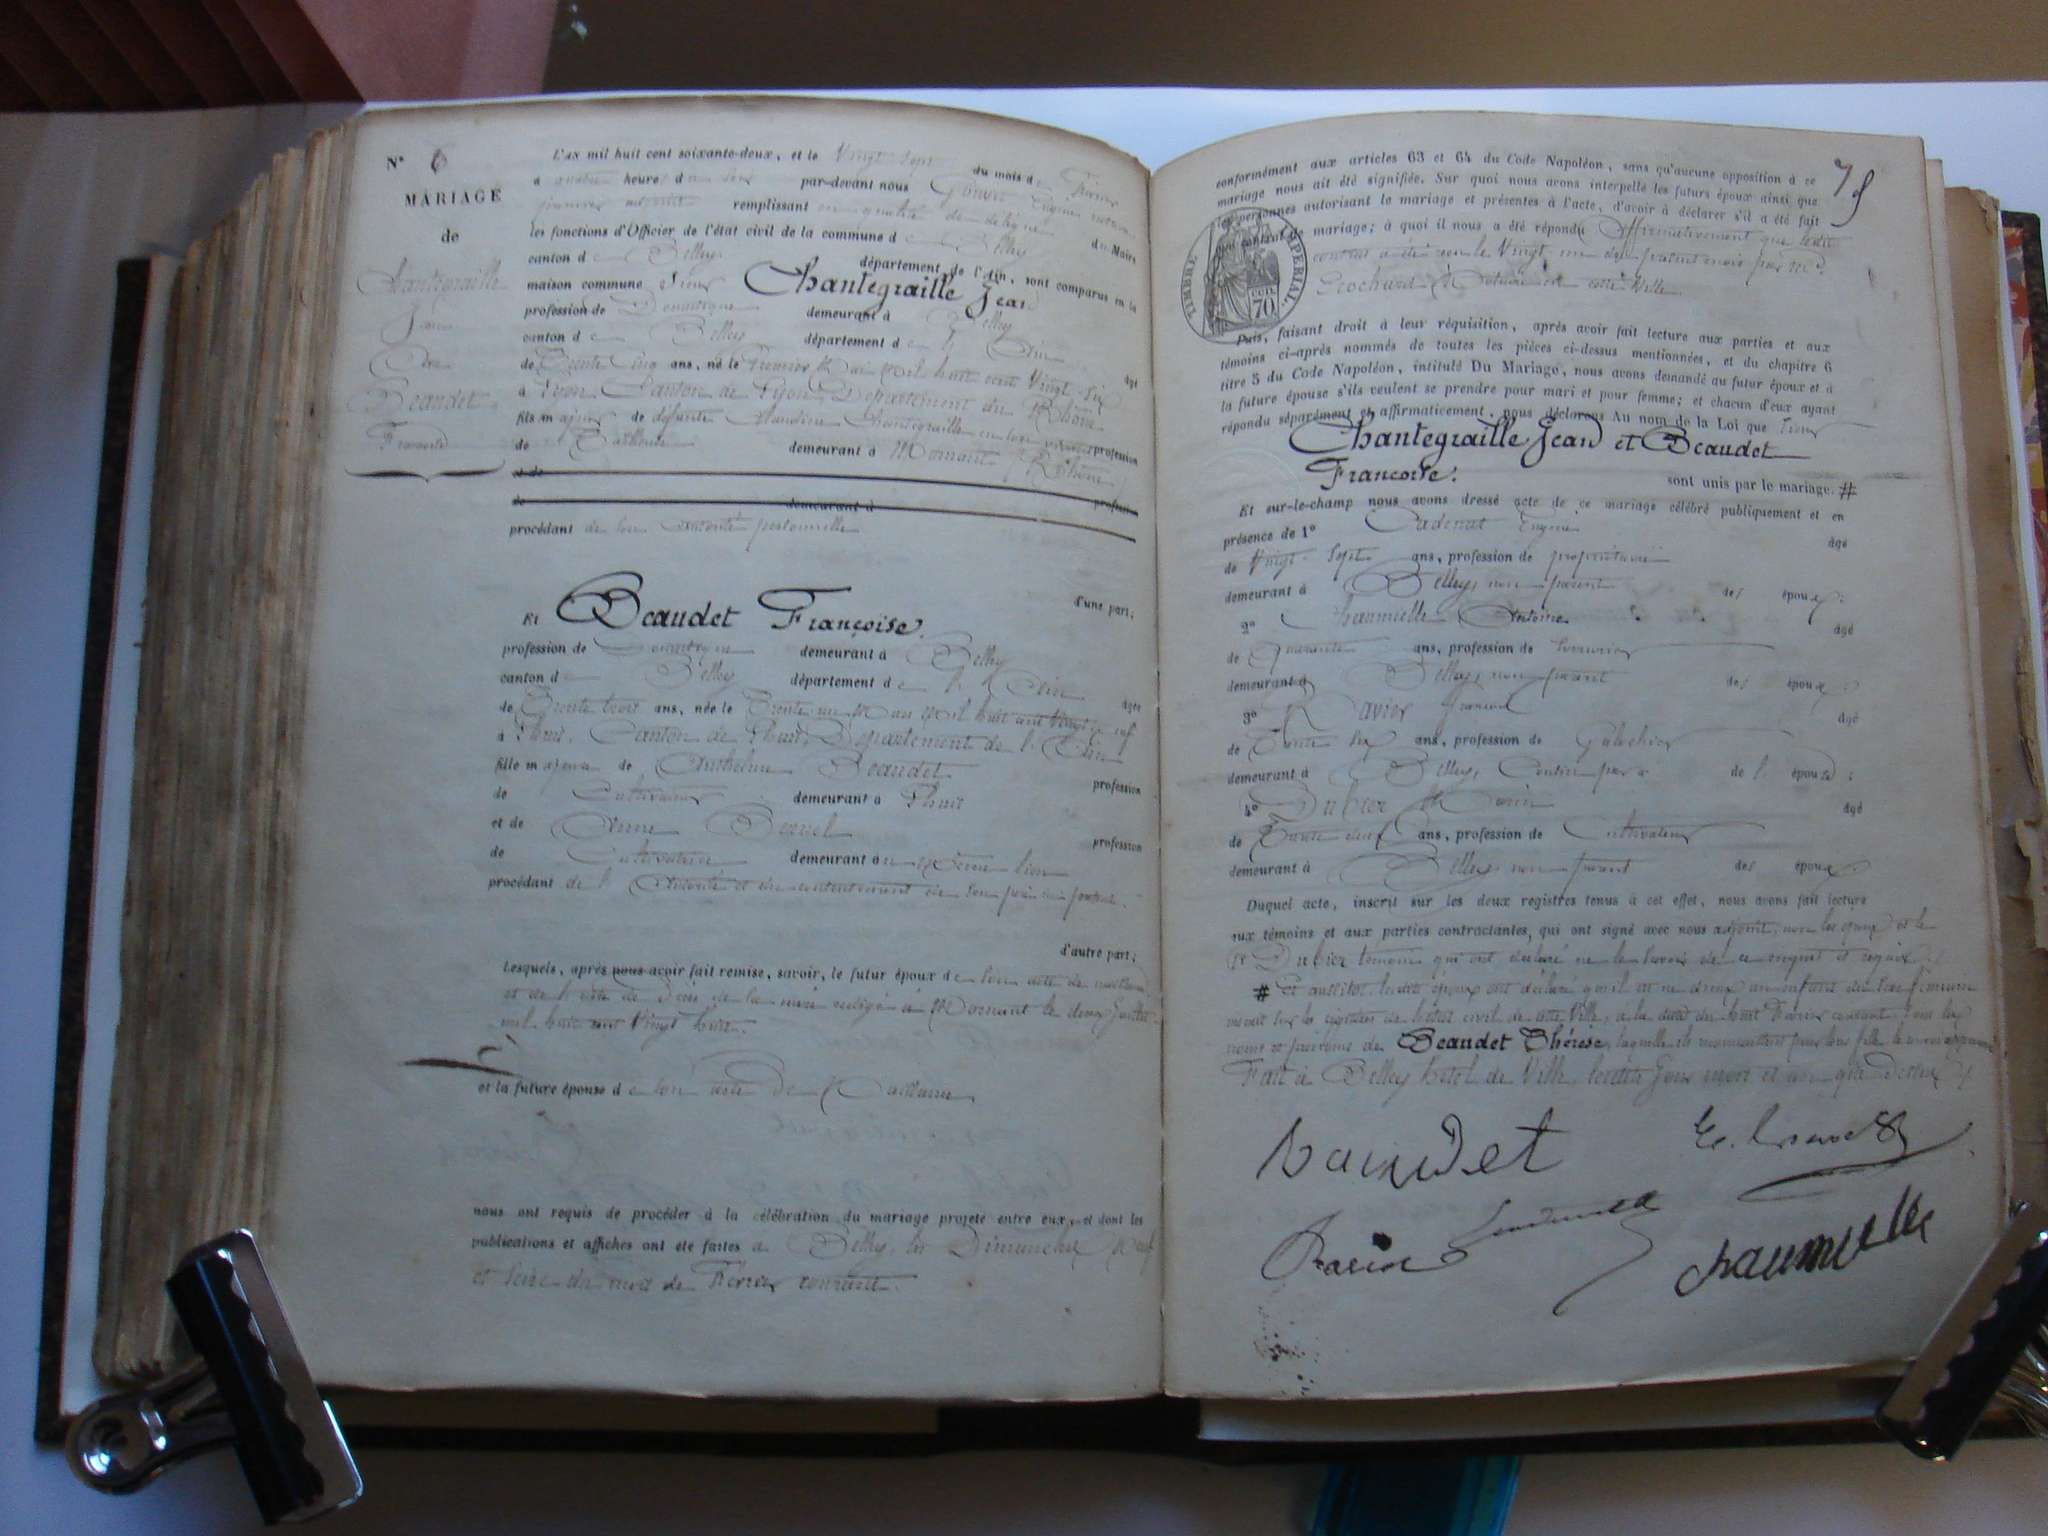 N° 6
MARIAGE
de
Chantegraille
Jean
Et
Beaudet
Françoise
L'an mil huit cent soixante-deux, et le Vingt Sept du mois de Février
à quatre heures du soir par-devant nous
premier adjoint remplissant en qualité de délégué du Maire
les fonctions d'Officier de l'état civil de la commune de Belley
canton de Belley département de l'Ain, sont comparus en la
maison commune Sieur Chantegraille Jean
profession de Domestique demeurant à Belley
canton de Belley département de l'Ain âgé
de Trente Cinq ans, né le Premier Mai Mil huit cent Vingt Six
à Lyon, Canton de Lyon, Département du Rhône
fils majeur de défunte Claudine Chantegraille en son vivant profession
de demeurant à Mornant (Rhône)
et de
de demeurant à profession
procédant de son autorité personnelle
d'une part;
Et Beaudet Françoise.
profession de Domestique demeurant à Belley
canton de Belley département de l'Ain âgée
de Trente trois ans, née le Trente un Mai Mil huit cent Vingt
à Lhuis, Canton de Lhuis, Département de l'Ain
fille majeure de Anthelme Beaudet profession
de Cultivateur demeurant à Lhuis
et de Anne profession
de Cultivatrice demeurant au Même lieu
procédant de l'autorité et du consentement de son père ici présent.
d'autre part;
Lesquels, après nous avoir fait remise, savoir, le futur époux de son acte de naissance
et de l'acte de Décès de sa mère rédigé à Mornant le deux
mil huit cent Vingt huit.
et la future épouse de son acte de Naissance
nous ont requis de procéder à la célébration du mariage projeté entre eux, et dont les
publications et affiches ont été faites à Belley, les Dimanches Neuf
et Seize du mois de Février courant.
75
conformément aux articles 63 et 64 du Code Napoléon, sans qu'aucune opposition à ce
mariage nous ait été signifiée. Sur quoi nous avons interpellé les futurs époux ainsi que
les personnes autorisant le mariage et présentes à l'acte, d'avoir à déclarer s'il a été fait
un contrat de mariage; à quoi il nous a été répondu Affirmativement que ledit
contrat a été reçu le Vingt un du présent mois par Me
Brochard Notaire en cette Ville
TIMBRE IMPERIAL
70 CEN.
Puis, faisant droit à leur réquisition, après avoir fait lecture aux parties et aux
témoins ci-après nommés de toutes les pièces ci-dessus mentionnées, et du chapitre 6
titre 5 du Code Napoléon, intitulé Du Mariage, nous avons demandé au futur époux et à
la future épouse s'ils veulent se prendre pour mari et pour femme; et chacun d'eux ayant
répondu séparément et affirmativement, nous déclarons Au nom de la Loi que Sieur
Chantegraille Jean et Beaudet
Françoise. sont unis par le mariage. #
Et sur-le-champ nous avons dressé acte de ce mariage célébré publiquement et en
présence de 1° Cadenat Eugène âgé
de Vingt Sept ans, profession de propriétaire
demeurant à Belley, non parent des époux;
2° Chaumelle Antoine âgé
de Quarante ans, profession de Serrurier
demeurant à Belley, non parent des époux;
3° Ravier François âgé
de Trente Six ans, profession de
demeurant à Belley, Cousin par de l'épouse;
4° Dubier âgé
de Trente neuf ans, profession de Cultivateur
demeurant à Belley, non parent des époux.
Duquel acte, inscrit sur les deux registres tenus à cet effet, nous avons fait lecture
aux témoins et aux parties contractantes, qui ont signé avec nous adjoint, non les époux et le
Sr Dubier témoin qui ont déclaré ne le savoir de ce enquis et requis.
# Et aussitôt lesdits époux ont déclaré qu'il est né d'eux un enfant du sexe féminin
inscrit sur les registres de l'état civil de cette Ville, à la date du huit Février courant sous les
noms et prénoms de Beaudet Thérèse, laquelle ils reconnaissent pour leur fille
Fait à Belley hôtel de Ville, lesdits jour mois et an que dessus
Baudet
Ravier
chaumelle